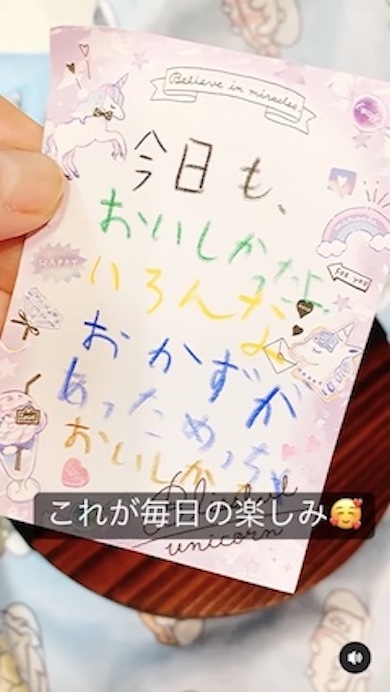 Believe in miracles
今日も、
おいしかったよ
いろんな
HAPPY
for you
おかずが
あっためっちゃ
おいしか
これが毎日の楽しみ🥰
unicorn